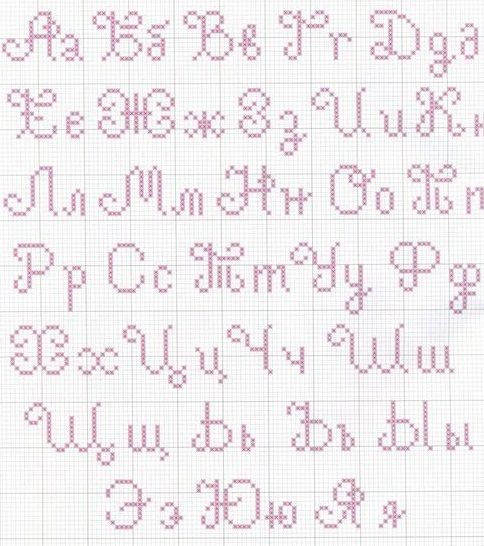 Аа Бб Вв Гг Дд д
Ее Жж Зз Ии Кк
Лл Мм Нн Оо Пп
Рр Сс Тт Уу Фф
Хх Цц Чч Шш
Щщ Ьь Ъъ Ыы
Ээ Юю Яя